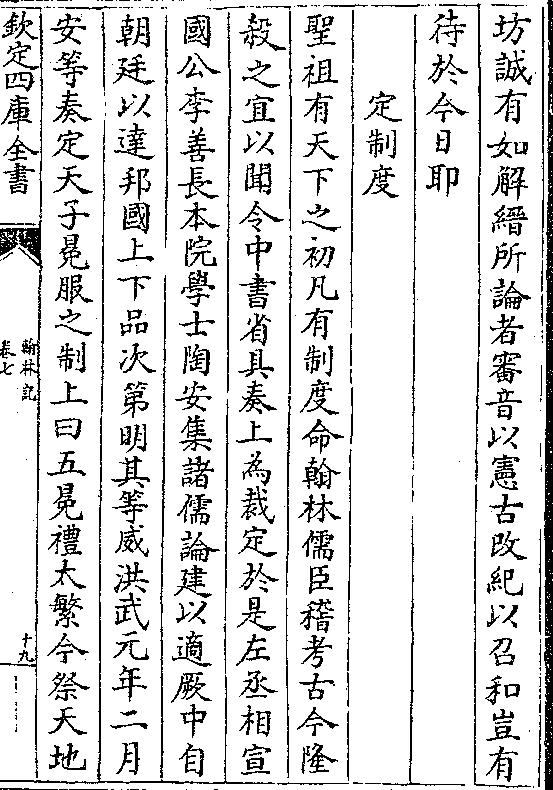 坊誠有如解縉所論者審音以憲古改紀以召和豈有
待於今日耶
定制度
聖祖有天下之初凡有制度命翰林儒臣稽考古今隆
殺之宜以聞令中書省具奏上為裁定於是左丞相宣
國公李善長本院學士陶安集諸儒論建以適厥中自
朝廷以達邦國上下品次第明其等威洪武元年二月
安等奏定天子冕服之制上曰五冕禮太繁今祭天地
欽定四庫全書
翰林記
卷七
十九